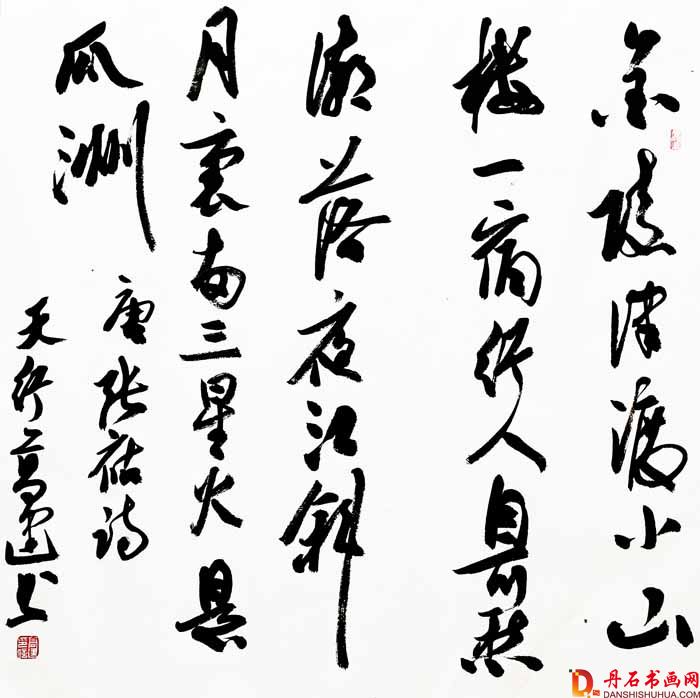 金陵津渡小山
樓一宿行人自可愁
潮落夜江斜
月裏兩三星火是
瓜洲
唐张祜诗
天行葛书
丹石书画网
DANSHISHUHUA.COM